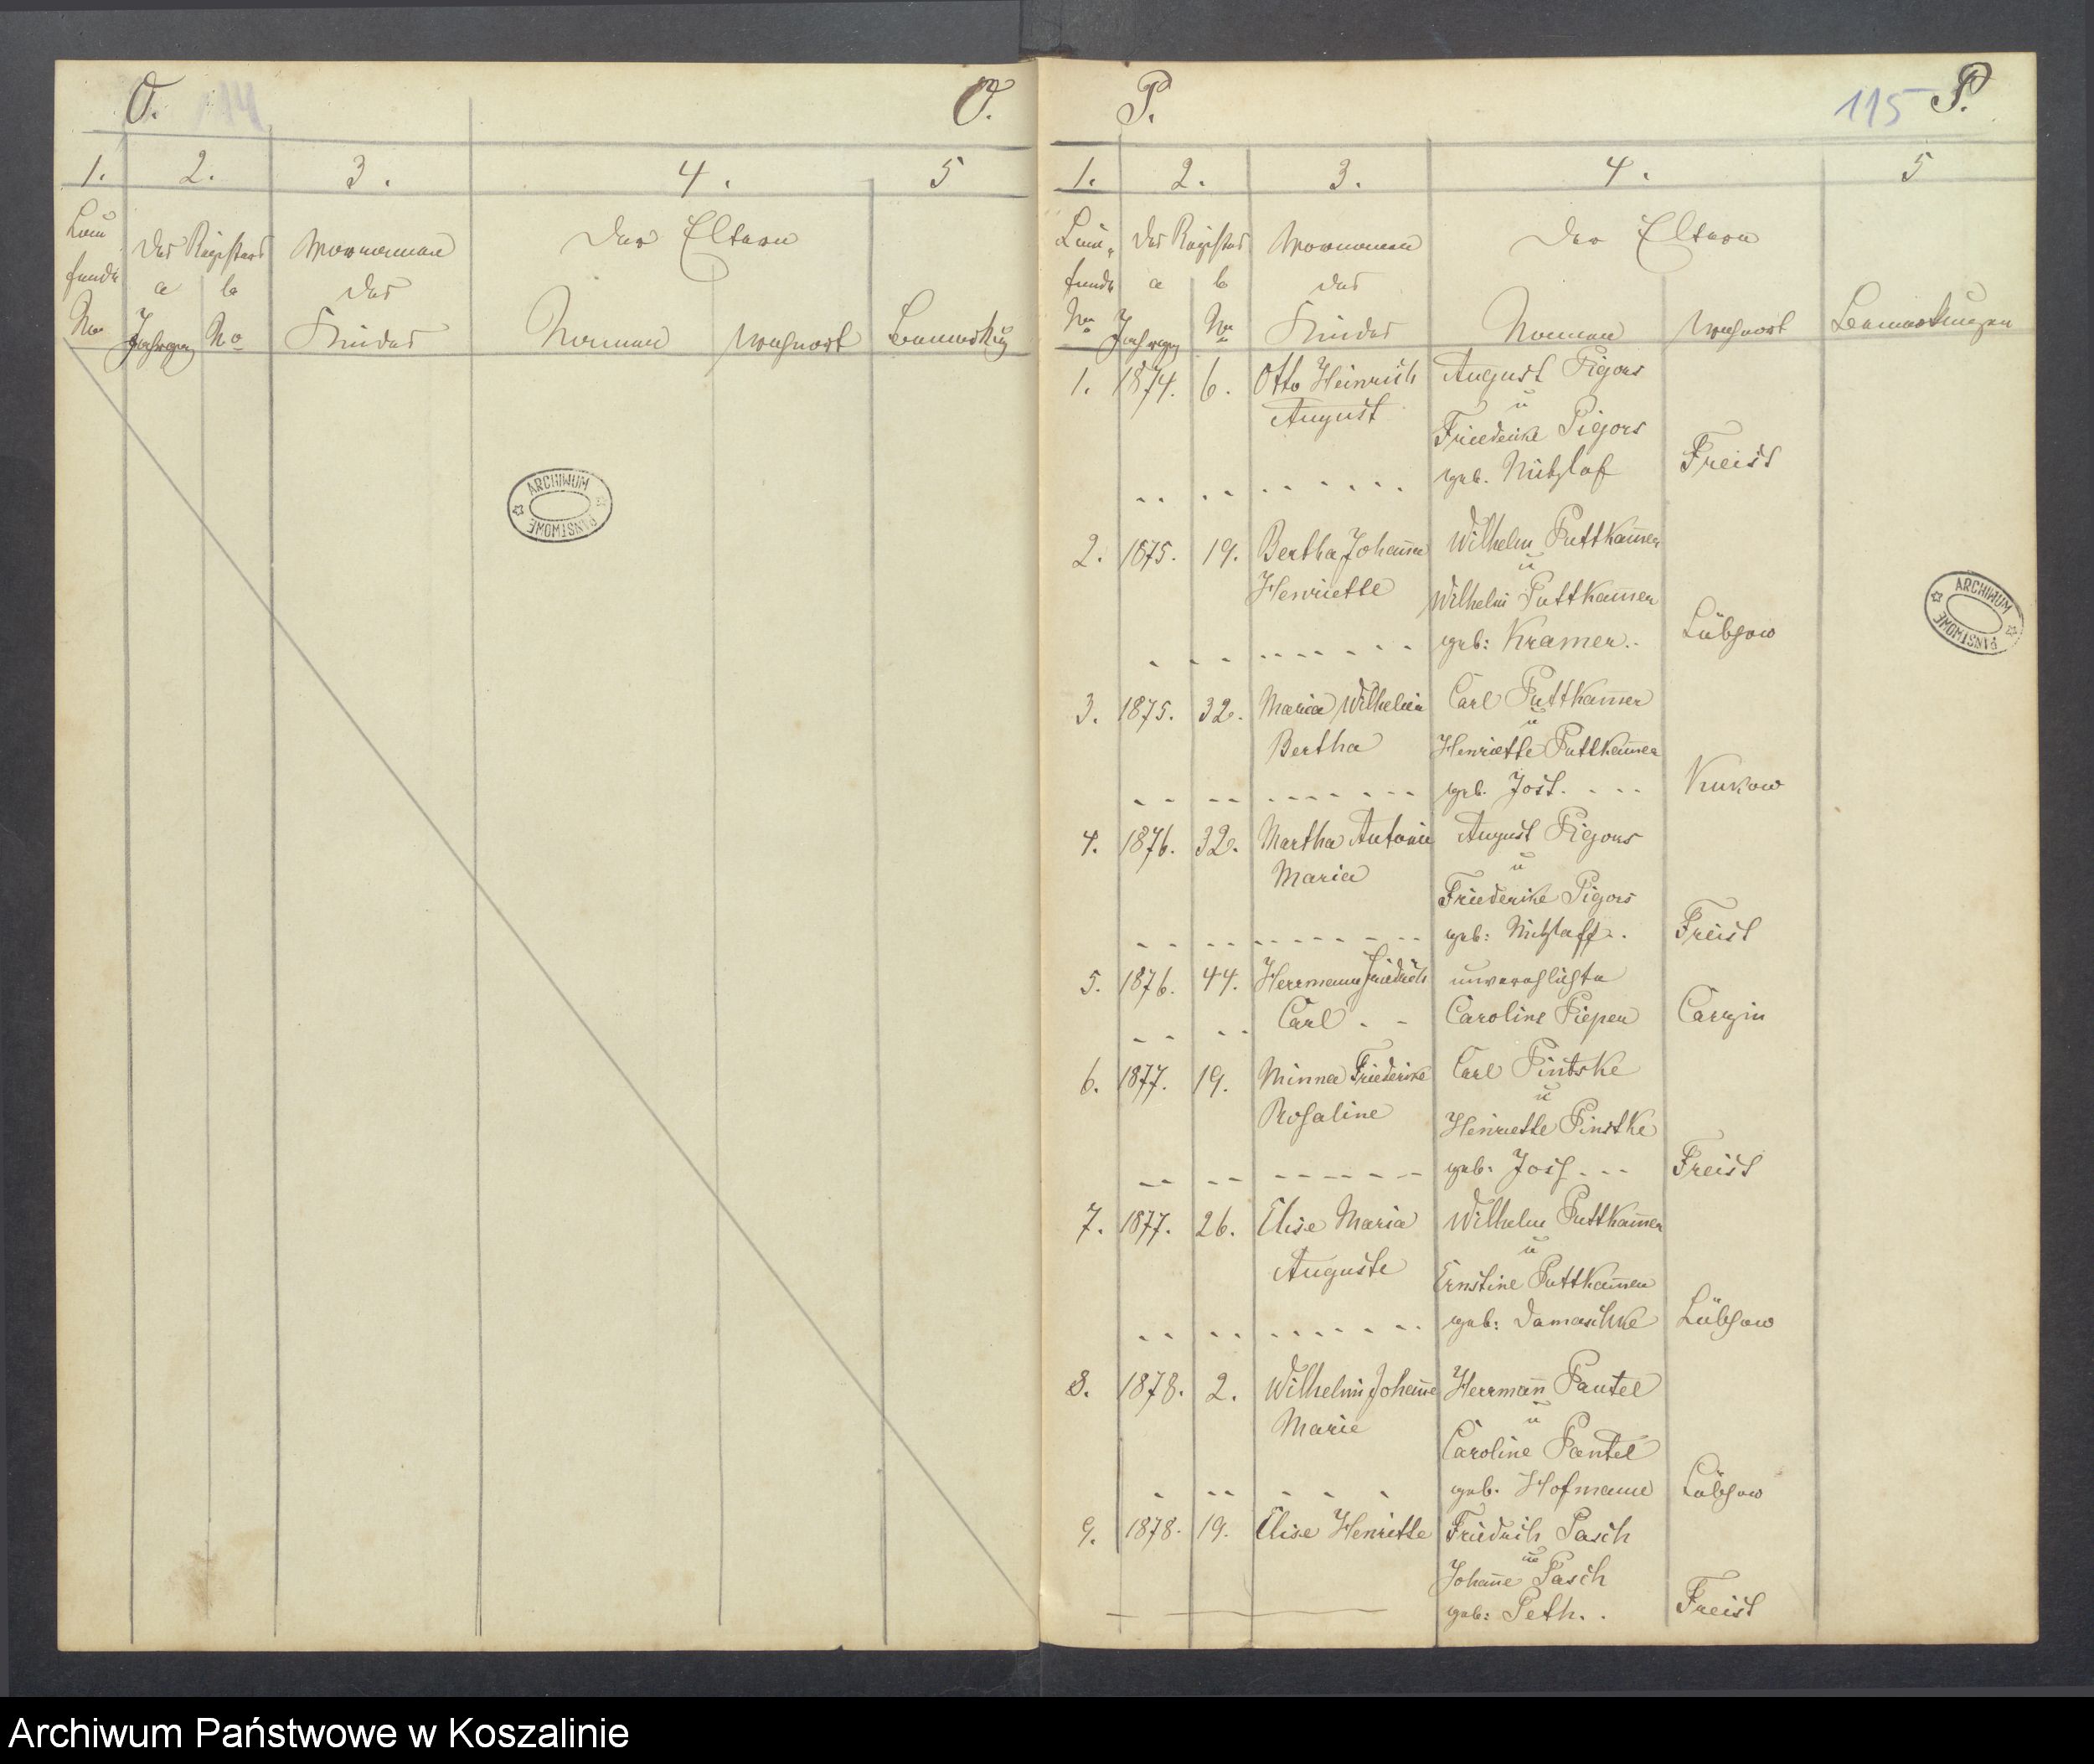 O. 114 O.
1. 2. 3. 4. 5
Lau
fende
No
Des Registers
a b
Jahrgang No
Vornamen
des
Kindes
Der Eltern
Namen Wohnort
Bemerkung
ARCHIWUM
PAŃSTWOWE
P. 115 P.
1. 2. 3. 4. 5
Lau-
fende
No
Des Registers
a b
Jahrgang No
Vornamen
des
Kindes
Der Eltern
Namen Wohnort
Bemerkungen
1. 1874. 6. Otto Heinrich August Pigors
August u
Friederike Pigors
geb. Nitzlaf Freist
2. 1875. 19. Bertha Johanna Wilhelm Puttkam̅er
u
Henriette Wilhelm Puttkam̅er
geb: Kramer. Lübzow
3. 1875. 32. Maria Wilhelm Carl Puttkam̅er
u
Bertha Henriette Puttkam̅er
geb. Jost. Kukow
4. 1876. 32. Martha Antonie August Pigors
u
Maria
Friederike Pigors
geb: Nitzlaff. Freist
5. 1876. 44. Herrmann Friedrich unverehlichte
Carl Caroline Piepen Carzin
6. 1877. 19. Minna Friederike Carl Pintske
u
Rosaline Henriette Pinstke
geb. Jost Freist
7. 1877. 26. Elise Maria Wilhelm Puttkam̅er
u
Auguste Ernstine Puttkam̅er
geb: Damaschke Lübzow
8. 1878. 2. Wilhelm Johan̅e Herrman̅ Pantel
u
Marie
Caroline Pantel
geb. Hofmann Lübzow
9. 1878. 19. Elise Henriette Friedrich Pasch
u
Johan̅e Pasch
geb: Peth. Freist
ARCHIWUM
PAŃSTWOWE
Archiwum Państwowe w Koszalinie